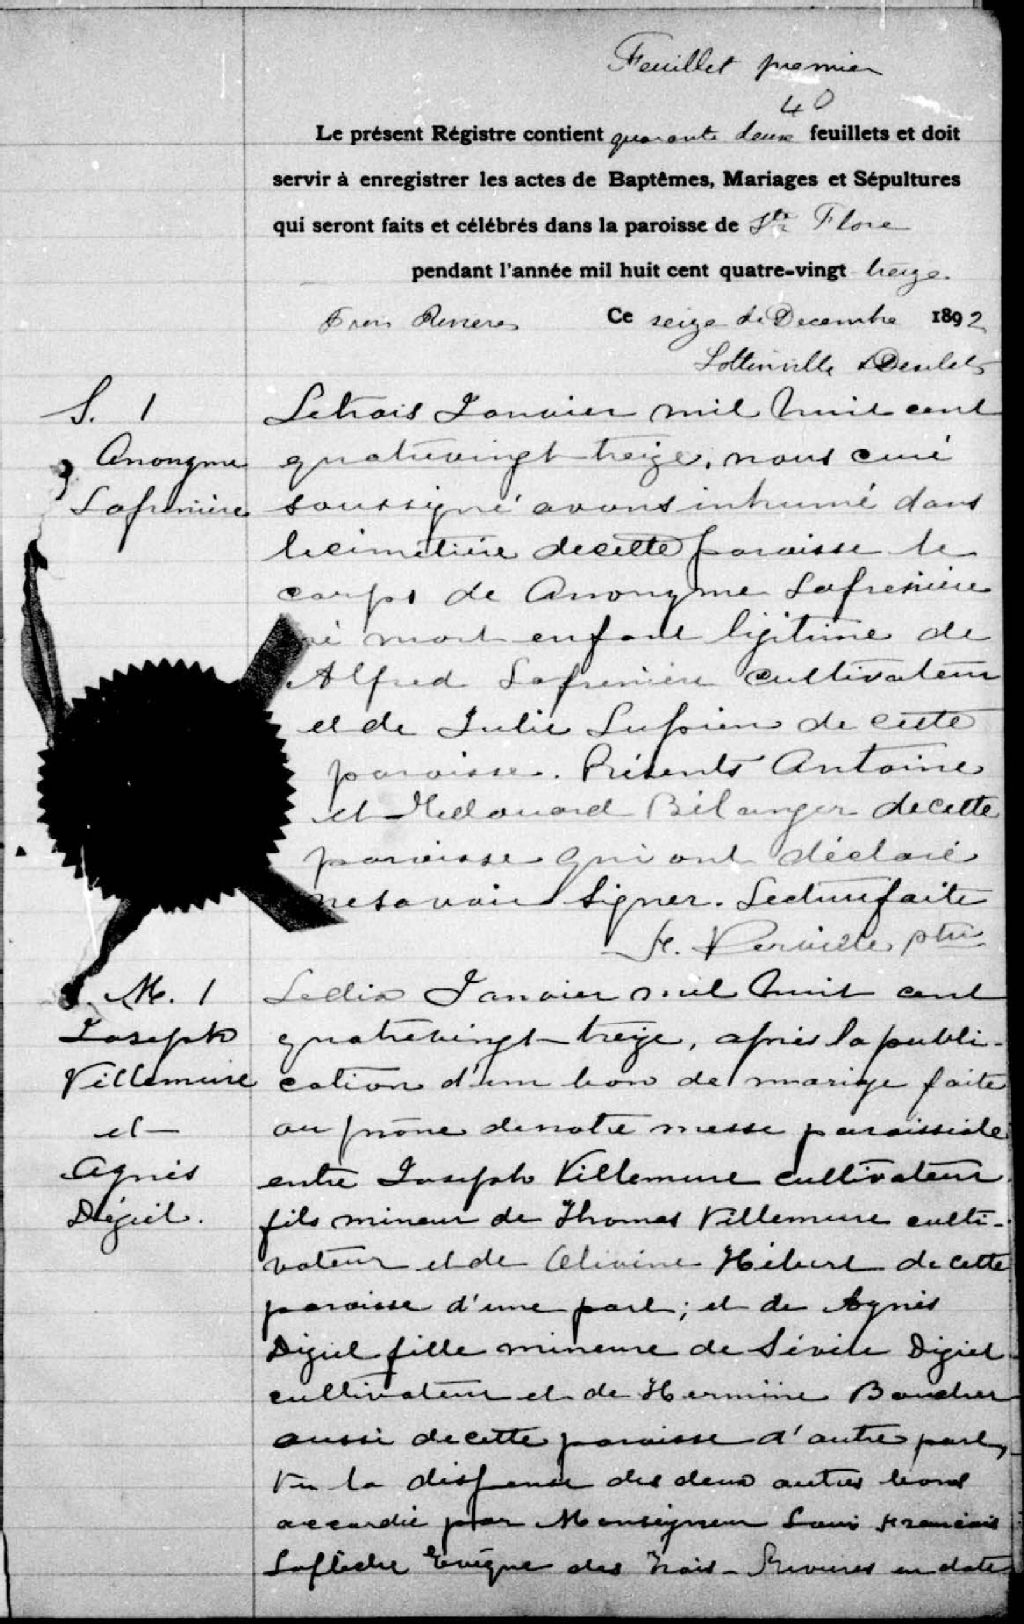 Feuillet premier
40
Le présent Régistre contient quarante deux feuillets et doit
servir à enregistrer les actes de Baptêmes, Mariages et Sépultures
qui seront faits et célébrés dans la paroisse de Ste Flore
pendant l'année mil huit cent quatre-vingt treize.
Trois Rivieres Ce seize de Decembre 1892
Lottinville &
S. 1
Anonyme
Lafrenière
Le trois Janvier mil huit cent
quatrevingt treize, nous curé
soussigné avons inhumé dans
le cimetière de cette paroisse le
corps de Anonyme Lafrenière
né mort enfant légitime de
Alfred Lafrenière cultivateur
et de Julie Lupien de cette
paroisse. Présents Antoine
et Médouard Bélanger de cette
paroisse qui ont déclaré
ne savoir signer. Lecture faite
ptre
M. 1
Joseph
Villemure
et
Agnès
Dégiel.
Le dix Janvier mil huit cent
quatrevingt treize, après la publi-
cation d'un ban de mariage faite
au prône de notre messe paroissiale
entre Joseph Villemure cultivateur
fils mineur de Thomas Villemure culti-
vateur et de Olivine Hébert de cette
paroisse d'une part; et de Agnès
Digiel fille mineure de Sévère Digiel
cultivateur et de Hermine Boucher
aussi de cette paroisse d'autre part,
Vu la dispense des deux autres bans
accordée par Monseigneur Louis François
Laflèche Evêque des Trois-Rivières en date